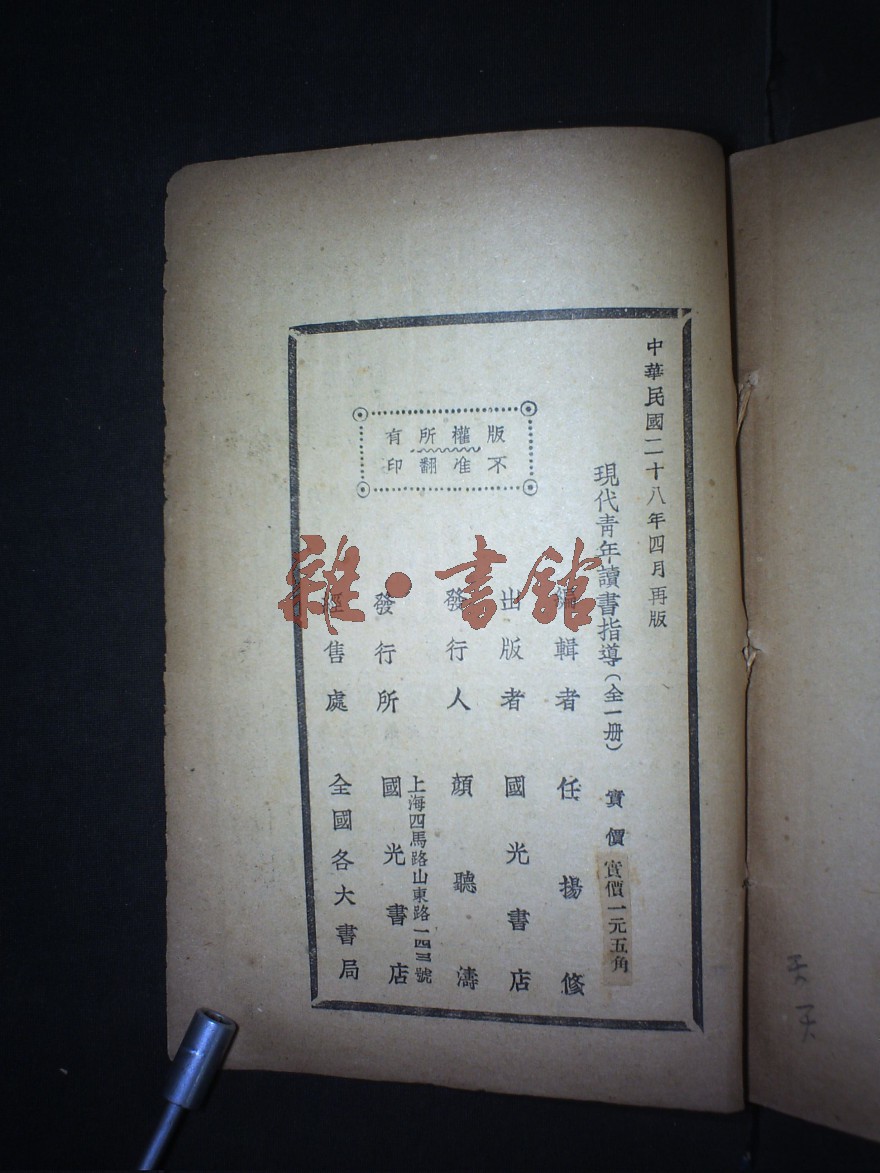 中華民國二十八年四月再版
現代青年讀書指導(全一册)
實價
實價一元五角
編輯者 任揚修
出版者 國光書店
發行人 顏聽濤
上海四馬路山東路一四三號
發行所 國光書店
經售處 全國各大書局
版權所有
不准翻印
雜·書館
天天